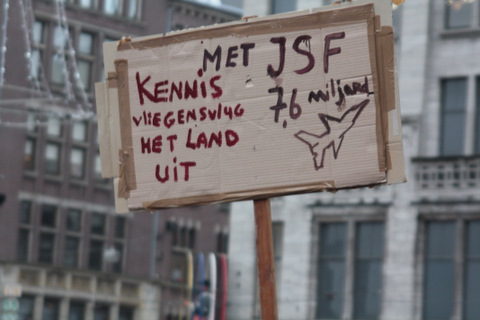 MET JSF
KENNIS 7.6 miljard
vliegensvlug
HET LAND
UIT